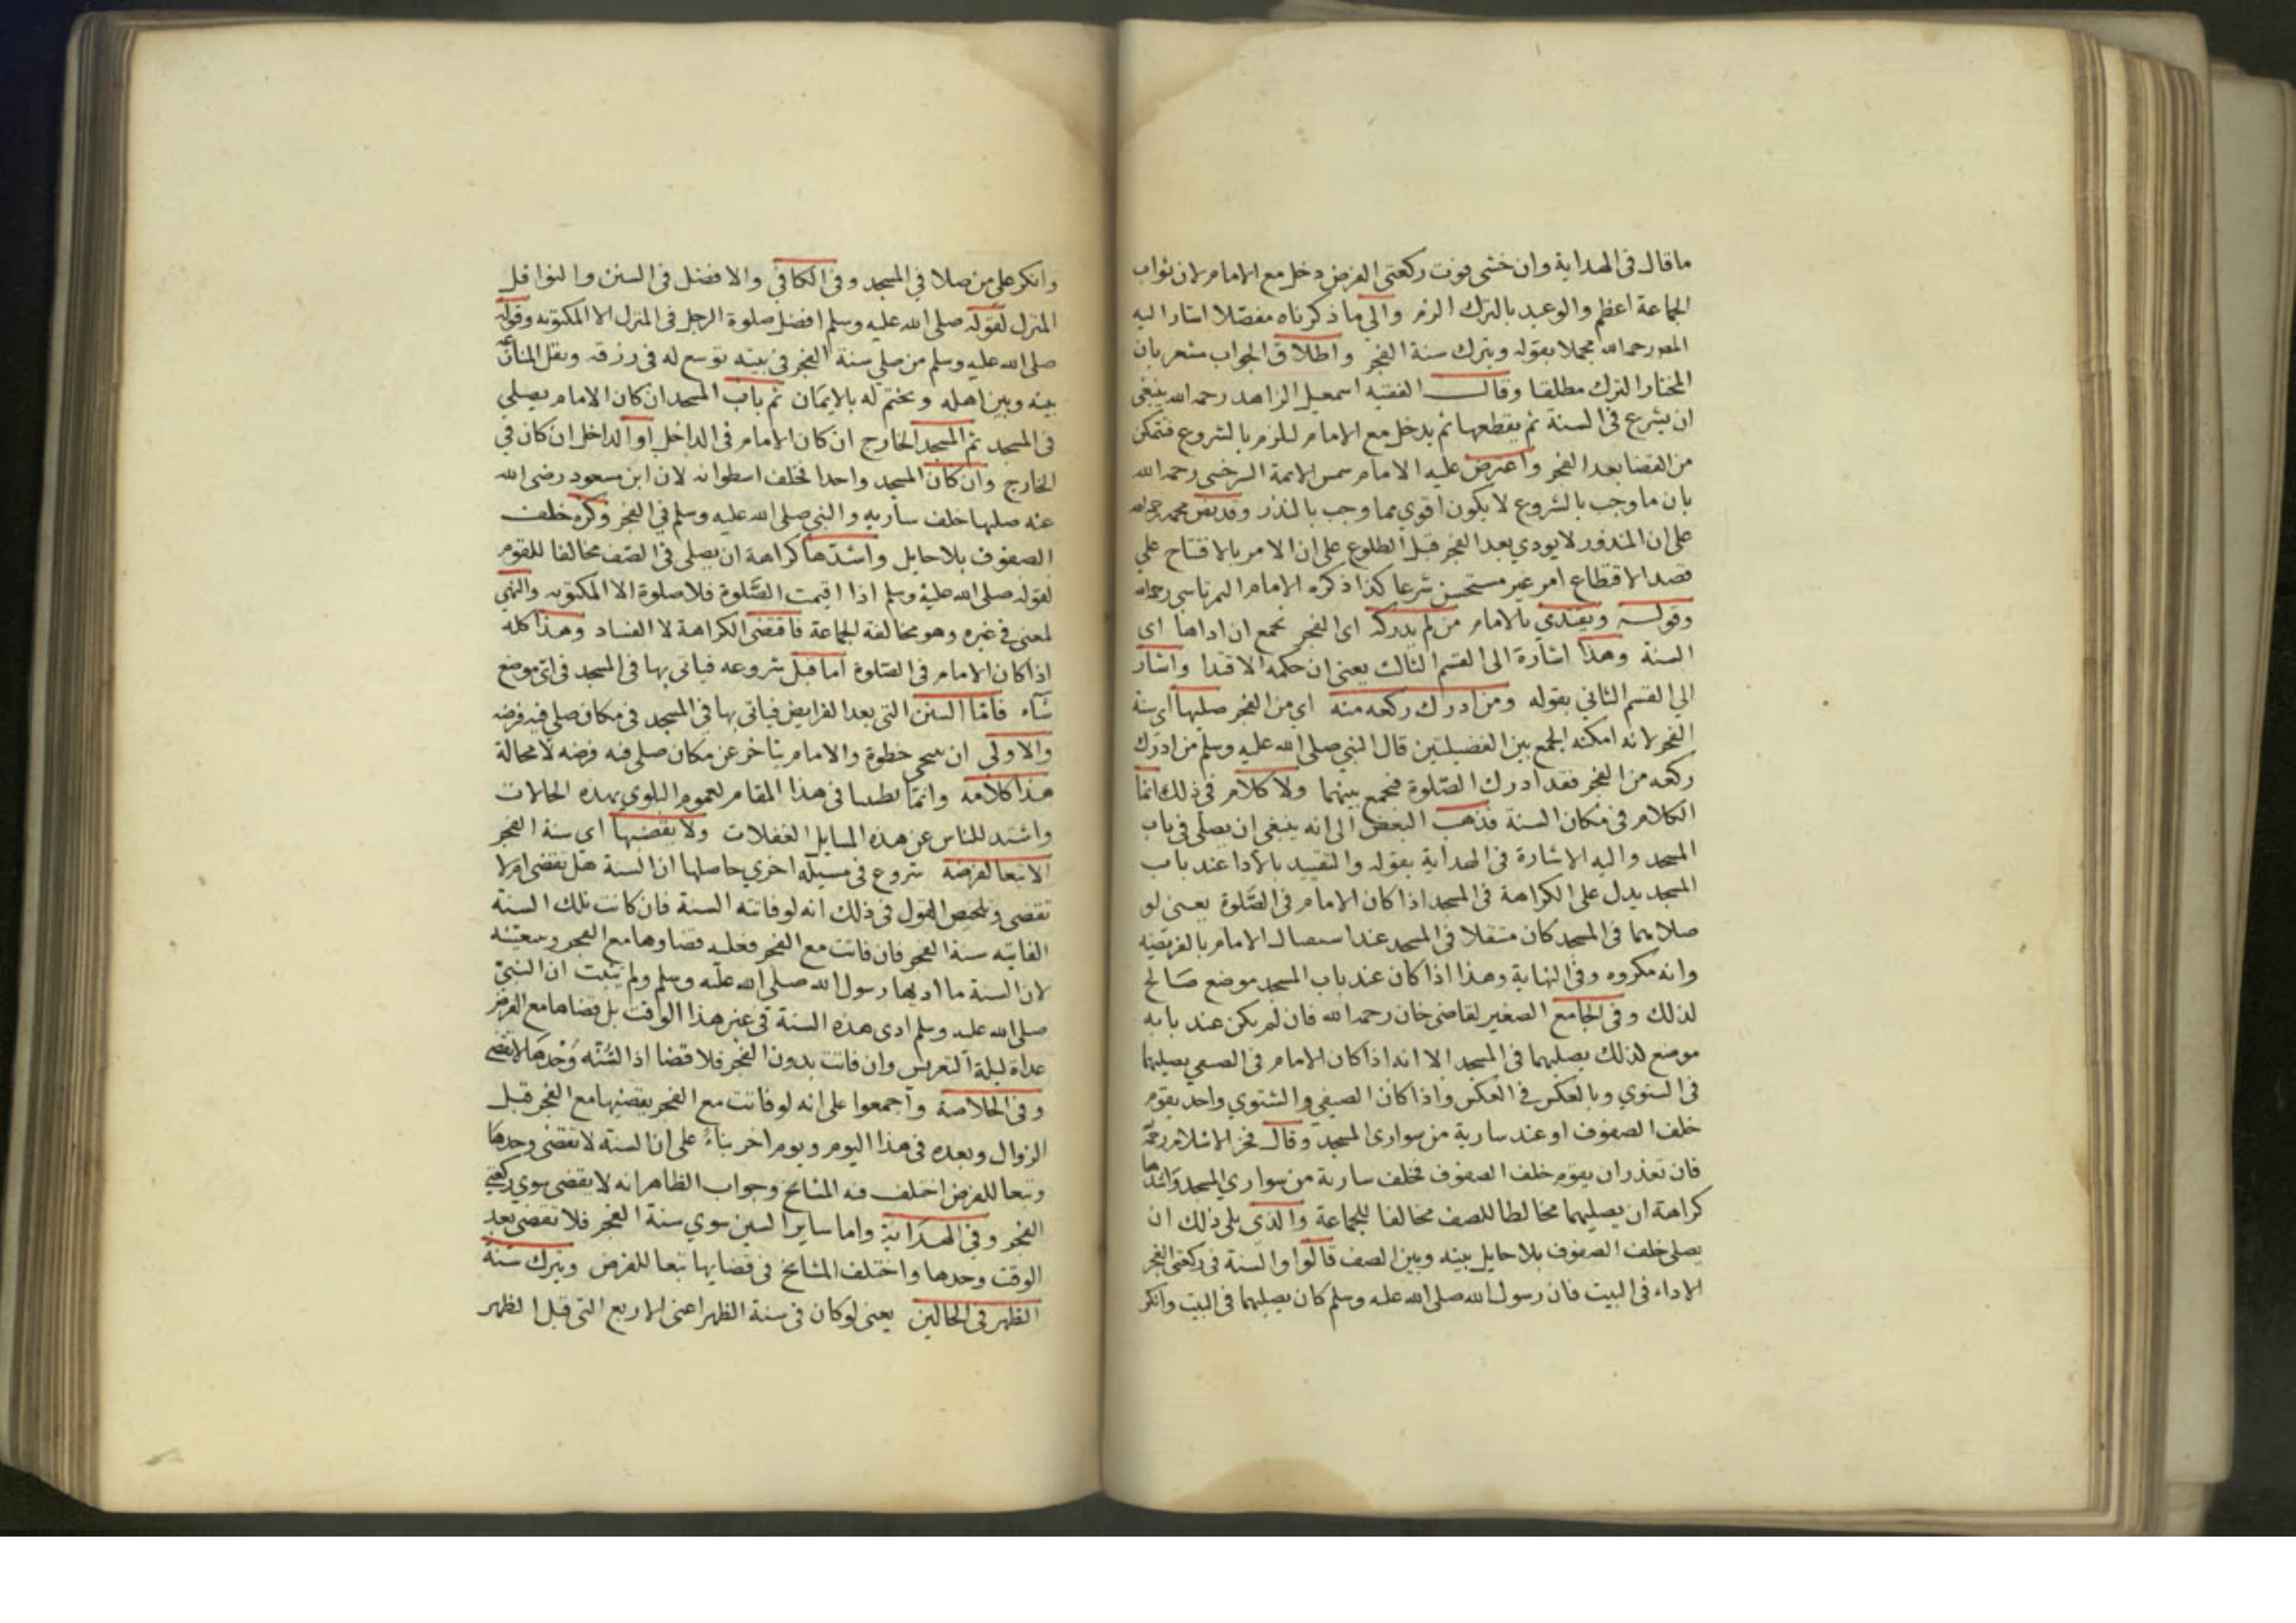 ما قال في الهداية وان خشى فوت ركعتى الفرض دخل مع الامام لان ثواب
الجماعة اعظم والوعيد بالترك الزم والي ما ذكرناه مفصلا اشار اليه
المص رحمه الله مجملا بقوله ويترك سنة الفجر واطلاق الجواب مشعر بان
المختار الترك مطلقا وقال الفقيه اسمعيل الزاهد رحمه الله ينبغى
ان يشرع في السنة ثم يقطعها ثم يدخل مع الامام للزم بالشروع فتمكن
من القضا بعد الفجر واعترض عليه الامام شمس الائمة السرخسى رحمه الله
بان ما وجب بالشروع لا يكون اقوي مما وجب بالنذر وقد نص محمد رحمه الله
على ان المنذور لا يودي بعد الفجر قبل الطلوع على ان الامر بالافتتاح علي
قصد الاقتطاع امر غير مستحسن شرعا كذا ذكره الامام التمرتاسى رحمه الله
وقوله ويقتدي بالامام من لم يدركه اى الفجر بجمع ان اداها اى
السنة وهذا اشارة الى القسم الثالث يعنى ان حكمه الاقتدا واشار
الي القسم الثاني بقوله ومن ادرك ركعه منه اي من الفجر صليها اى سنة
الفجر لانه امكنه الجمع بين الفضيلتين قال النبي صلى الله عليه وسلم من ادرك
ركعه من الفجر فقد ادرك الصلوة فيجمع بينهما ولا كلام في ذلك انما
الكلام في مكان السنة فذهب البعض الى انه ينبغى ان يصلى في باب
المسجد واليه الاشارة في الهداية بقوله والتقييد بالادا عند باب
المسجد يدل على الكراهة في المسجد اذا كان الامام في الصلوة يعنى لو
صلاهما في المسجد كان متنفلا في المسجد عند اشتغال الامام بالفريضه
وانه مكروه وفي النهاية وهذا اذا كان عند باب المسجد موضع صالح
لذلك وفي الجامع الصغير لقاضى خان رحمه الله فان لم يكن عند بابه
موضع لذلك يصليهما في المسجد الا انه اذا كان الامام في الصيفي يصليهما
في الشتوي وبالعكس في العكس واذا كان الصيفي والشتوي واحد يقوم
خلف الصفوف او عند سارية من سوارى المسجد وقال فخر الاسلام رحمه
فان تعذر ان يقوم خلف الصفوف فخلف سارية من سواري المسجد واشدها
كراهة ان يصليهما مخالطا للصف مخالفا للجماعة والذى يلى ذلك ان
يصلى خلف الصفوف بلا حايل بينه وبين الصف قالوا والسنة في ركعتى الفجر
الاداء في البيت فان رسول الله صلى الله عليه وسلم كان يصليهما في البيت وانكر
وانكر على من صلا في المسجد وفي الكافي والافضل في السنن والنوافل
المنزل لقوله صلى الله عليه وسلم افضل صلوة الرجل في المنزل الا المكتوبه وقوله
صلى الله عليه وسلم من صلي سنة الفجر في بيته توسع له في رزقه ويقل المنازعه
بينه وبين اهله ويختم له بالايمان ثم باب المسجد ان كان الامام يصلي
في المسجد ثم المسجد الخارج ان كان الامام في الداخل او الداخل ان كان في
الخارج وان كان المسجد واحدا فخلف اسطوانه لان ابن مسعود رضى الله
عنه صليها خلف ساريه والنبي صلى الله عليه وسلم في الفجر وكره خلف
الصفوف بلا حايل واشدها كراهة ان يصلى في الصف مخالفا للقوم
لقوله صلى الله عليه وسلم اذا اقيمت الصلوة فلا صلوة الا المكتوبه والنهي
لمعنى في غيره وهو مخالفة الجماعة فاقتضى الكراهة لا الفساد وهذا كله
اذا كان الامام في الصلوة اما قبل شروعه فياتي بها في المسجد في اي موضع
شاء فاما السنن التى بعد الفرايض فياتى بها في المسجد في مكان صلي فيه فرضه
والاولى ان يتنحى خطوة والامام يتاخر عن مكان صلى فيه فرضه لا محالة
هذا كلامه وانما بطنا في هذا المقام لعموم البلوي بهذه الحالات
واشتد للناس عن هذه المسايل الغفلات ولا يقضيها اى سنة الفجر
الا تبعا لفرضه شروع في مسيلة اخري حاصلها ان السنة هل تقضى ام لا
تقضى وتلخيص القول في ذلك انه لو فاتته السنة فان كانت تلك السنة
الفايته سنة الفجر فان فاتت مع الفجر فعليه قضاوها مع الفجر وسعيته
لان السنة ما اديها رسول الله صلى الله عليه وسلم ولم يثبت ان النبي
صلى الله عليه وسلم ادى هذه السنة في غير هذا الوقت بل قضاها مع الفرض
غداة ليلة التعريس وان فاتت بدون الفجر فلا قضا اذ السنه وحدها لا تقضى
وفي الخلاصة واجمعوا على انه لو فاتت مع الفجر يقضيها مع الفجر قبل
الزوال وبعده في هذا اليوم ويوم اخر بناء على ان السنة لا تقضى وحدها
وتبعا للفرض اختلف فيه المشايخ وجواب الظاهر انه لا يقضى سوي ركعتي
الفجر وفي الهداية واما ساير السنن سوي سنة الفجر فلا تقضى بعد
الوقت وحدها واختلف المشايخ في قضايها تبعا للفرض ويترك سنة
الظهر في الحالين يعنى لو كان في سنة الظهر اعنى الاربع التى قبل الظهر